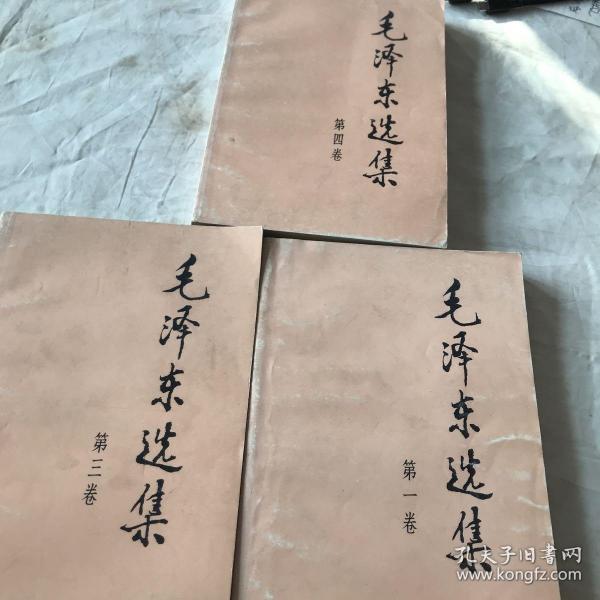 毛泽东选集
第四卷
毛泽东选集
第三卷
毛泽东选集
第一卷
孔夫子旧書网
www.kongfz.com